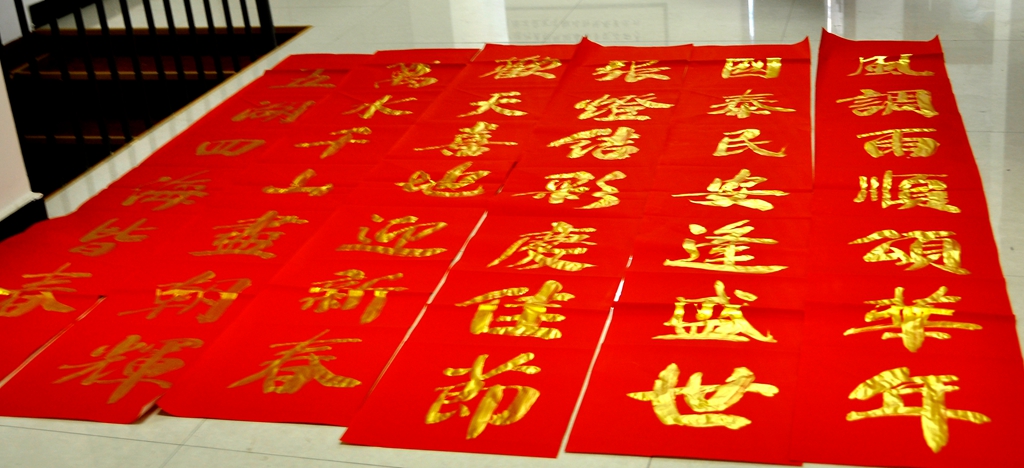 風調雨順頌華年
國泰民安逢盛世
張燈結彩慶佳節
歡天喜地迎新春
萬水千山盡朝輝
五湖四海皆春